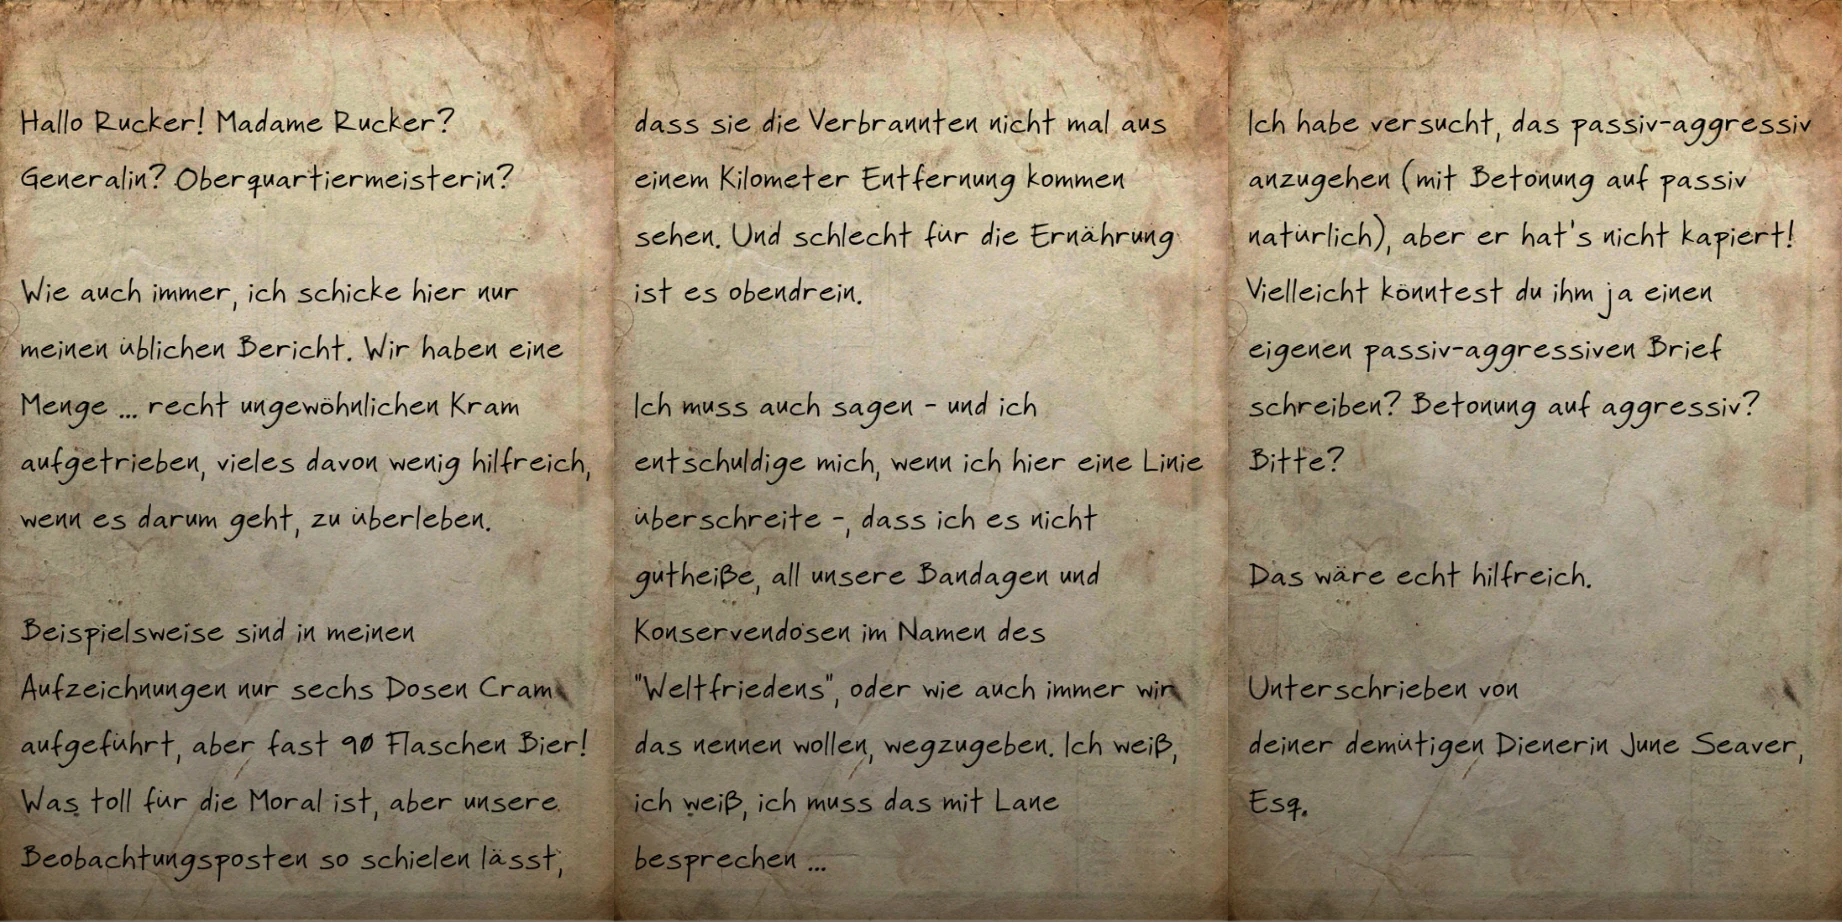 Hallo Rucker! Madame Rucker?
Generalin? Oberquartiermeisterin?
Wie auch immer, ich schicke hier nur
meinen üblichen Bericht. Wir haben eine
Menge ... recht ungewöhnlichen Kram
aufgetrieben, vieles davon wenig hilfreich,
wenn es darum geht, zu überleben.
Beispielsweise sind in meinen
Aufzeichnungen nur sechs Dosen Cram
aufgeführt, aber fast 90 Flaschen Bier!
Was toll für die Moral ist, aber unsere
Beobachtungsposten so schielen lässt,
dass sie die Verbrannten nicht mal aus
einem Kilometer Entfernung kommen
sehen. Und schlecht für die Ernährung
ist es obendrein.
Ich muss auch sagen - und ich
entschuldige mich, wenn ich hier eine Linie
überschreite -, dass ich es nicht
gutheiße, all unsere Bandagen und
Konservendosen im Namen des
"Weltfriedens", oder wie auch immer wir
das nennen wollen, wegzugeben. Ich weiß,
ich weiß, ich muss das mit Lane
besprechen ...
Ich habe versucht, das passiv-aggressiv
anzugehen (mit Betonung auf passiv
natürlich), aber er hat's nicht kapiert!
Vielleicht könntest du ihm ja einen
eigenen passiv-aggressiven Brief
schreiben? Betonung auf aggressiv?
Bitte?
Das wäre echt hilfreich.
Unterschrieben von
deiner demütigen Dienerin June Seaver,
Esq.